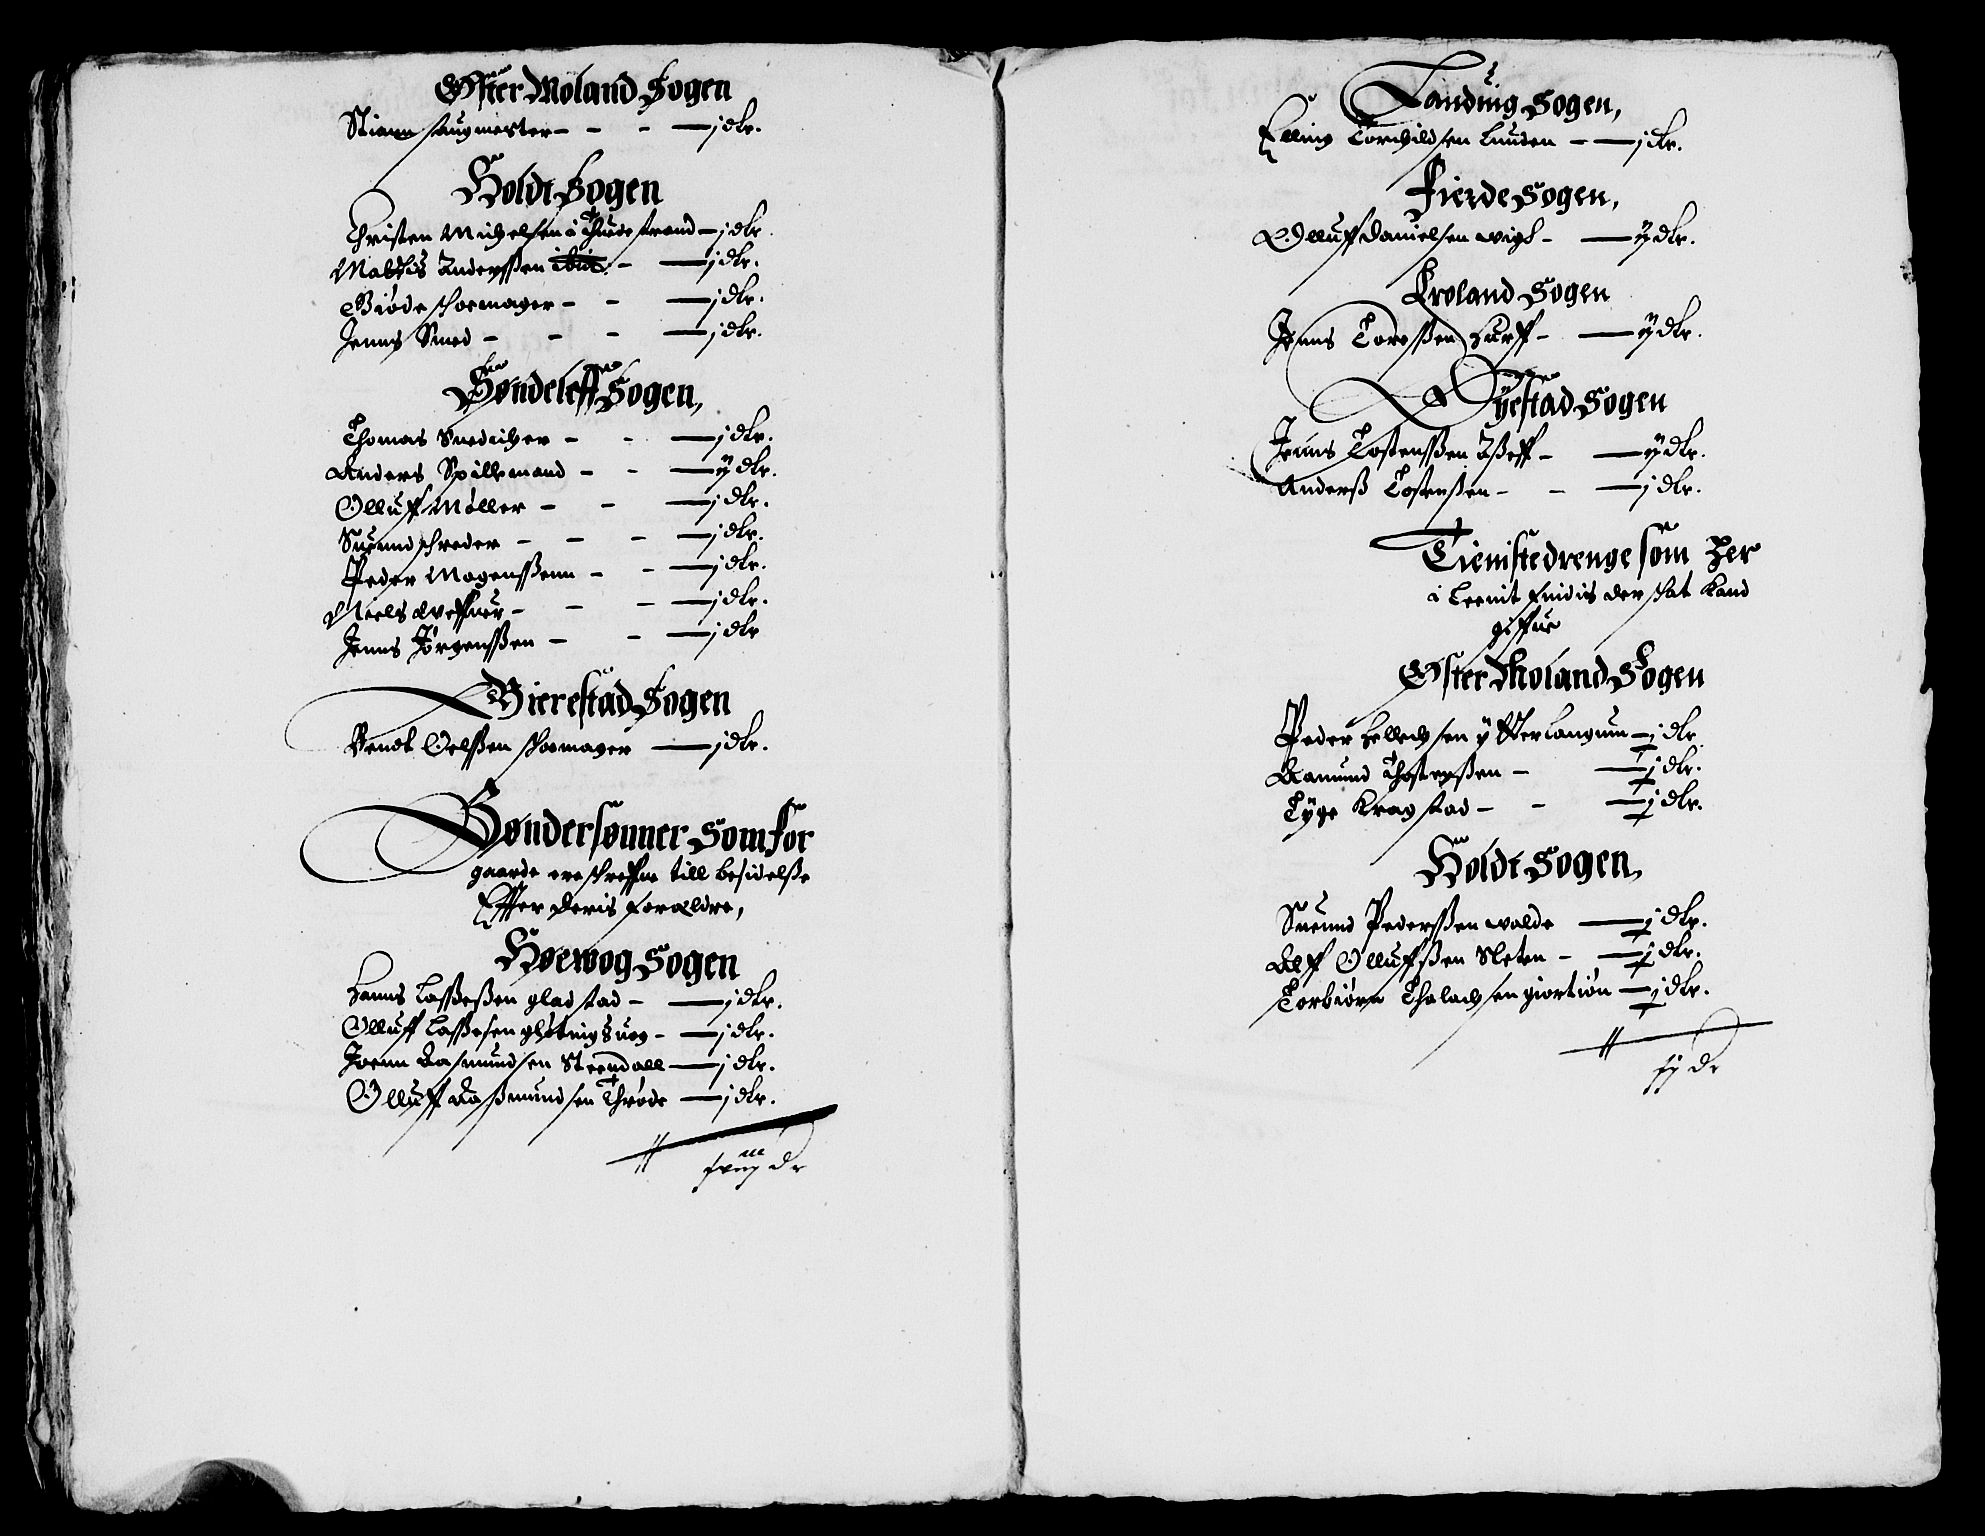 Øster Moland Sogen
Stiann saugmester – – – — j dlr.
Holdt Sogen
Christen Michelsen i Thuedestrand — j dlr.
Mattis Anderssen ibid: – — j dlr.
Giøde skoemager – – — j dlr.
Jenns Smed – – – — j dlr.
Søndeleff Sogen,
Thomas Snedicher – – — j dlr.
Anders Spillemand – – — ij dlr.
Olluff Møller – – — j dlr.
Suennd schreder – – – — j dlr.
Peder Mogenssenn – – — j dlr.
Niels – – — j dlr.
Jenns Jørgenssen – – — j dlr
Bierestad Sogen
Bendt Oelssen skoemager — j dlr.
Bøndersønner som for
gaarde ere schreffne till besidelsse
Effter Deris foreldre,
Høewog Sogen
Hanns Lassessen gladstad – — j dlr.
Olluff Lassesen – — j dlr.
Joenn Aasmundsen Steendall — j dlr.
Olluff Aassmundsen Thrøde — j dlr.
dr
Landuig Sogen,
Elling Torchildsen Lunden – — j dlr.
Fierde Sogen,
Olluff Danielsen wigh – — ij dlr.
Eroland Sogen
Jenns Toressen – — ij dlr.
Øyestad Sogen
Jenns Tostenssen Asseff – — ij dlr.
Anderss Tostenssen – – — j dlr.
Tienistedrenge som her
i Leenit findis der skat kand
giffue
Øster Moland Sogen
Peder Sellechsen ytter Langum — j dlr
Aamund Thostenssen – — j dlr.
Tyge Kragstad – – — j dlr.
Holdt Sogen,
Suennd Pederssen walde — j dlr.
Alff Olluffssen Sleten – — j dlr.
Torbiørn Thalachsen giortiön — j dlr.
dr